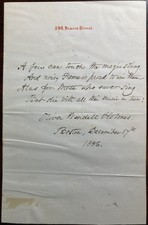 296, Beacon Street.
A few can touch the magic string
And noisy Fame is proud to win them
Alas for those who never sing
But die with all their music in them
Oliver Wendell Holmes
Boston, December 17th
1886.